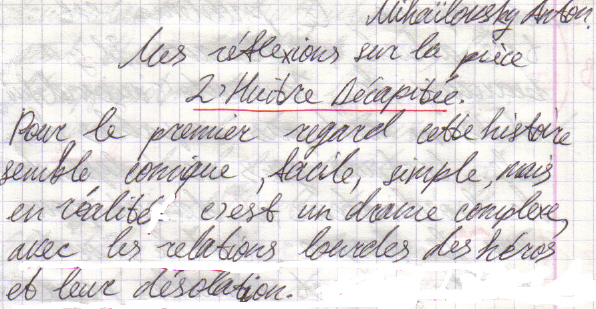 Mihaïlovsky Anton.
Mes réflexions sur la pièce
L'Huître Décapitée.
Pour le premier regard cette histoire
semble comique, facile, simple, mais
en réalité c'est un drame complexe,
avec les relations lourdes des héros
et leur désolation.